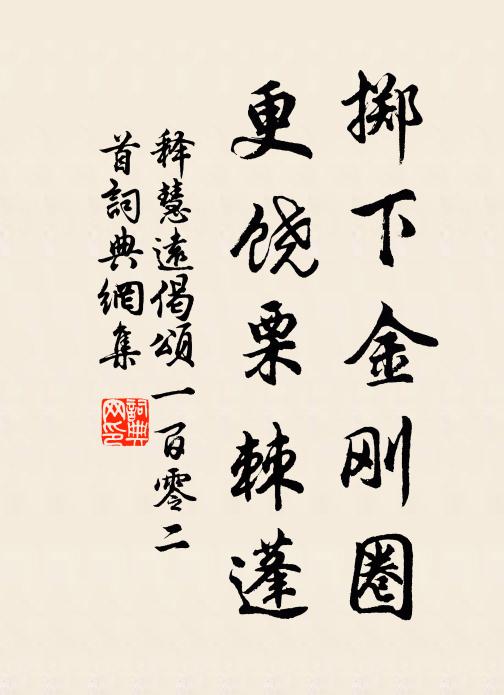 掷下金刚圈
更饶栗棘蓬
释慧遠偈頌一百零二
首詞典網集
詞典网印